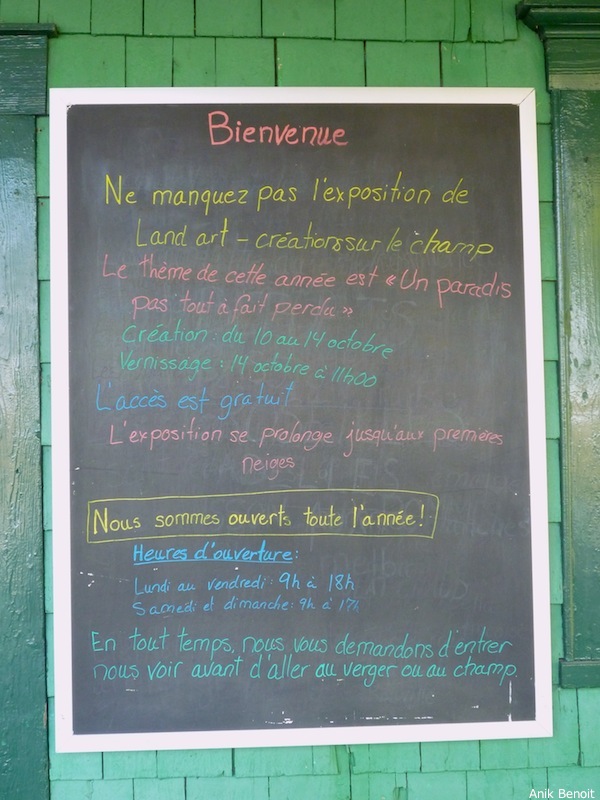 Bienvenue
Ne manquez pas l'exposition de
Land art – créations sur le champ
Le thème de cette année est «Un paradis
pas tout à fait perdu»
Création : du 10 au 14 octobre
Vernissage : 14 octobre à 11h00
L'accès est gratuit
L'exposition se prolonge jusqu'aux premières
neiges
Nous sommes ouverts toute l'année!
Heures d'ouverture:
Lundi au vendredi: 9h à 18h
Samedi et dimanche: 9h à 17h
En tout temps, nous vous demandons d'entrer
nous voir avant d'aller au verger ou au champ.
Anik Benoit